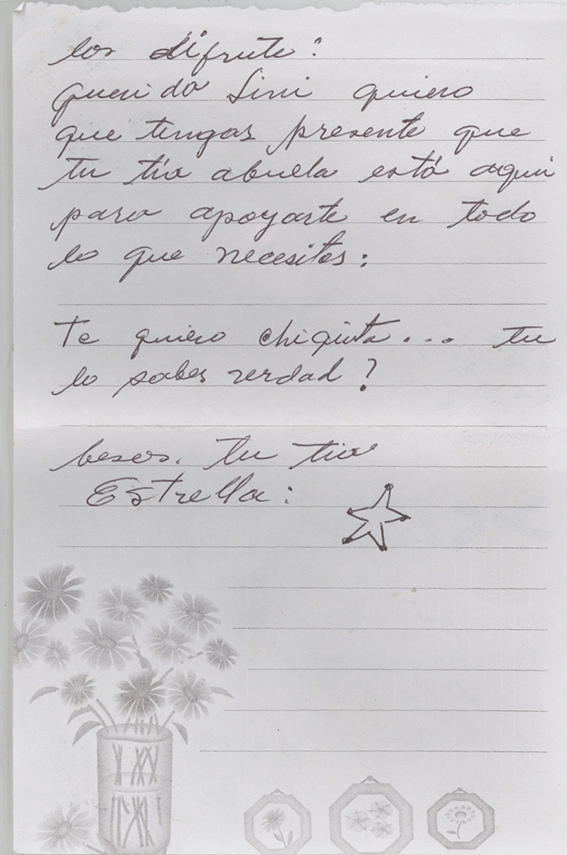 los difrute:
querida Simi quiero
que tengas presente que
tu tía abuela está aqui
para apoyarte en todo
lo que necesites:
Te quiero chiquita... tu
lo sabes verdad?
besos. Tu tia
Estrella: